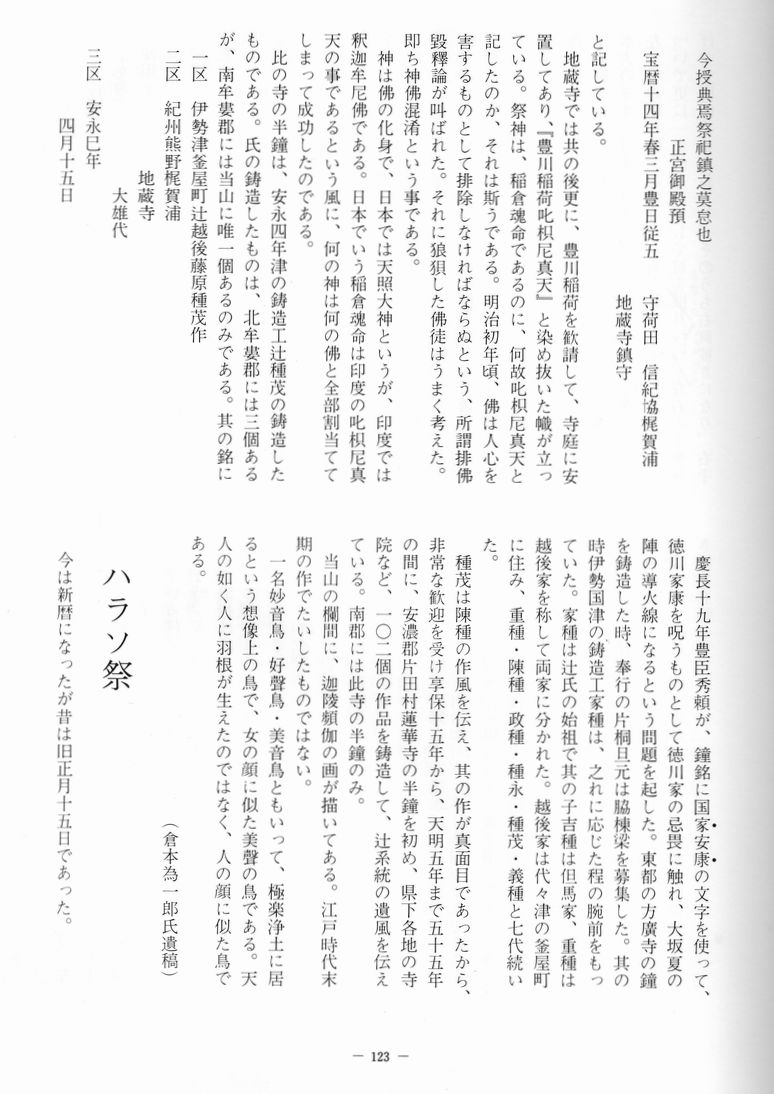 今授典焉祭祀鎮之莫怠也
正宮御殿預
宝暦十四年春三月豊日従五　守荷田　信紀協梶賀浦
地蔵寺鎮守
と記している。
地蔵寺では共の後更に、豊川稲荷を歓請して、寺庭に安
置してあり、『豊川稲荷叱枳尼真天』と染め抜いた幟が立っ
ている。祭神は、稲倉魂命であるのに、何故叱枳尼真天と
記したのか、それは斯うである。明治初年頃、佛は人心を
害するものとして排除しなければならぬという、所謂排佛
毀釋論が叫ばれた。それに狼狽した佛徒はうまく考えた。
即ち神佛混淆という事である。
神は佛の化身で、日本では天照大神というが、印度では
釈迦牟尼佛である。日本でいう稲倉魂命は印度の叱枳尼真
天の事であるという風に、何の神は何の佛と全部割当てて
しまって成功したのである。
比の寺の半鐘は、安永四年津の鋳造工辻種茂の鋳造した
ものである。氏の鋳造したものは、北牟婁郡には三個ある
が、南牟婁郡には当山に唯一個あるのみである。其の銘に
一区　伊勢津釜屋町辻越後藤原種茂作
二区　紀州熊野梶賀浦
地蔵寺
大雄代
三区　安永巳年
四月十五日
慶長十九年豊臣秀頼が、鐘銘に国家安康の文字を使って、
徳川家康を呪うものとして徳川家の忌畏に触れ、大坂夏の
陣の導火線になるという問題を起した。東都の方廣寺の鐘
を鋳造した時、奉行の片桐旦元は脇棟梁を募集した。其の
時伊勢国津の鋳造工家種は、之れに応じた程の腕前をもっ
ていた。家種は辻氏の始祖で其の子吉種は但馬家、重種は
越後家を称して両家に分かれた。越後家は代々津の釜屋町
に住み、重種・陳種・政種・種永・種茂・義種と七代続い
た。
種茂は陳種の作風を伝え、其の作が真面目であったから、
非常な歓迎を受け享保十五年から、天明五年まで五十五年
の間に、安濃郡片田村蓮華寺の半鐘を初め、県下各地の寺
院など、一〇二個の作品を鋳造して、辻系統の遺風を伝え
ている。南郡には此寺の半鐘のみ。
当山の欄間に、迦陵頻伽の画が描いてある。江戸時代末
期の作でたいしたものではない。
一名妙音鳥・好聲鳥・美音鳥ともいって、極楽浄土に居
るという想像上の鳥で、女の顔に似た美聲の鳥である。天
人の如く人に羽根が生えたのではなく、人の顔に似た鳥で
ある。
（倉本為一郎氏遺稿）
ハラソ祭
今は新暦になったが昔は旧正月十五日であった。
― 123 ―